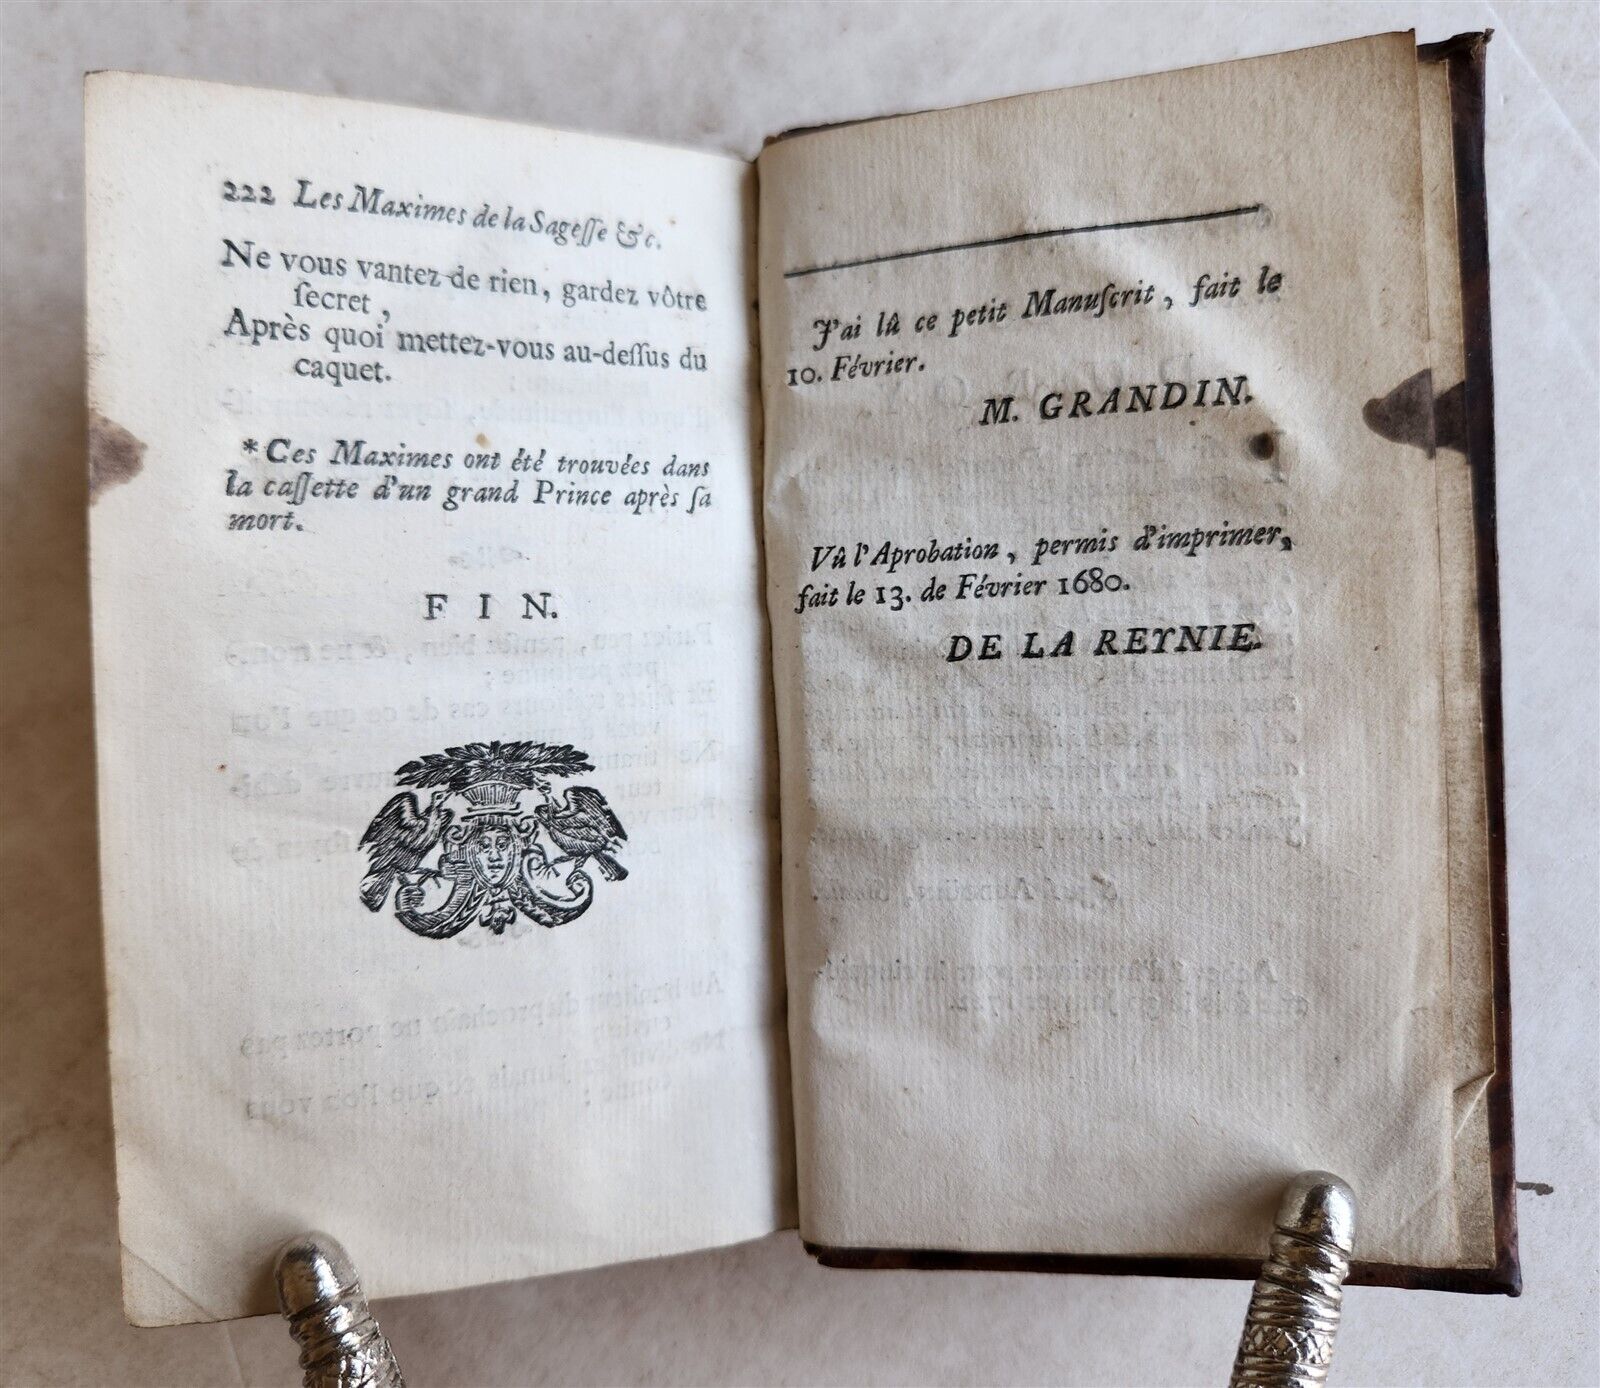 222 Les Maximes de la Sageſſe &c.
Ne vous vantez de rien, gardez vôtre
ſecret,
Après quoi mettez-vous au-deſſus du
caquet.
*Ces Maximes ont été trouvées dans
la caſſette d'un grand Prince après ſa
mort.
F I N.
J'ai lû ce petit Manuſcrit, fait le
10. Février.
M. GRANDIN.
Vû l'Aprobation, permis d'imprimer,
fait le 13. de Février 1680.
DE LA REYNIE.